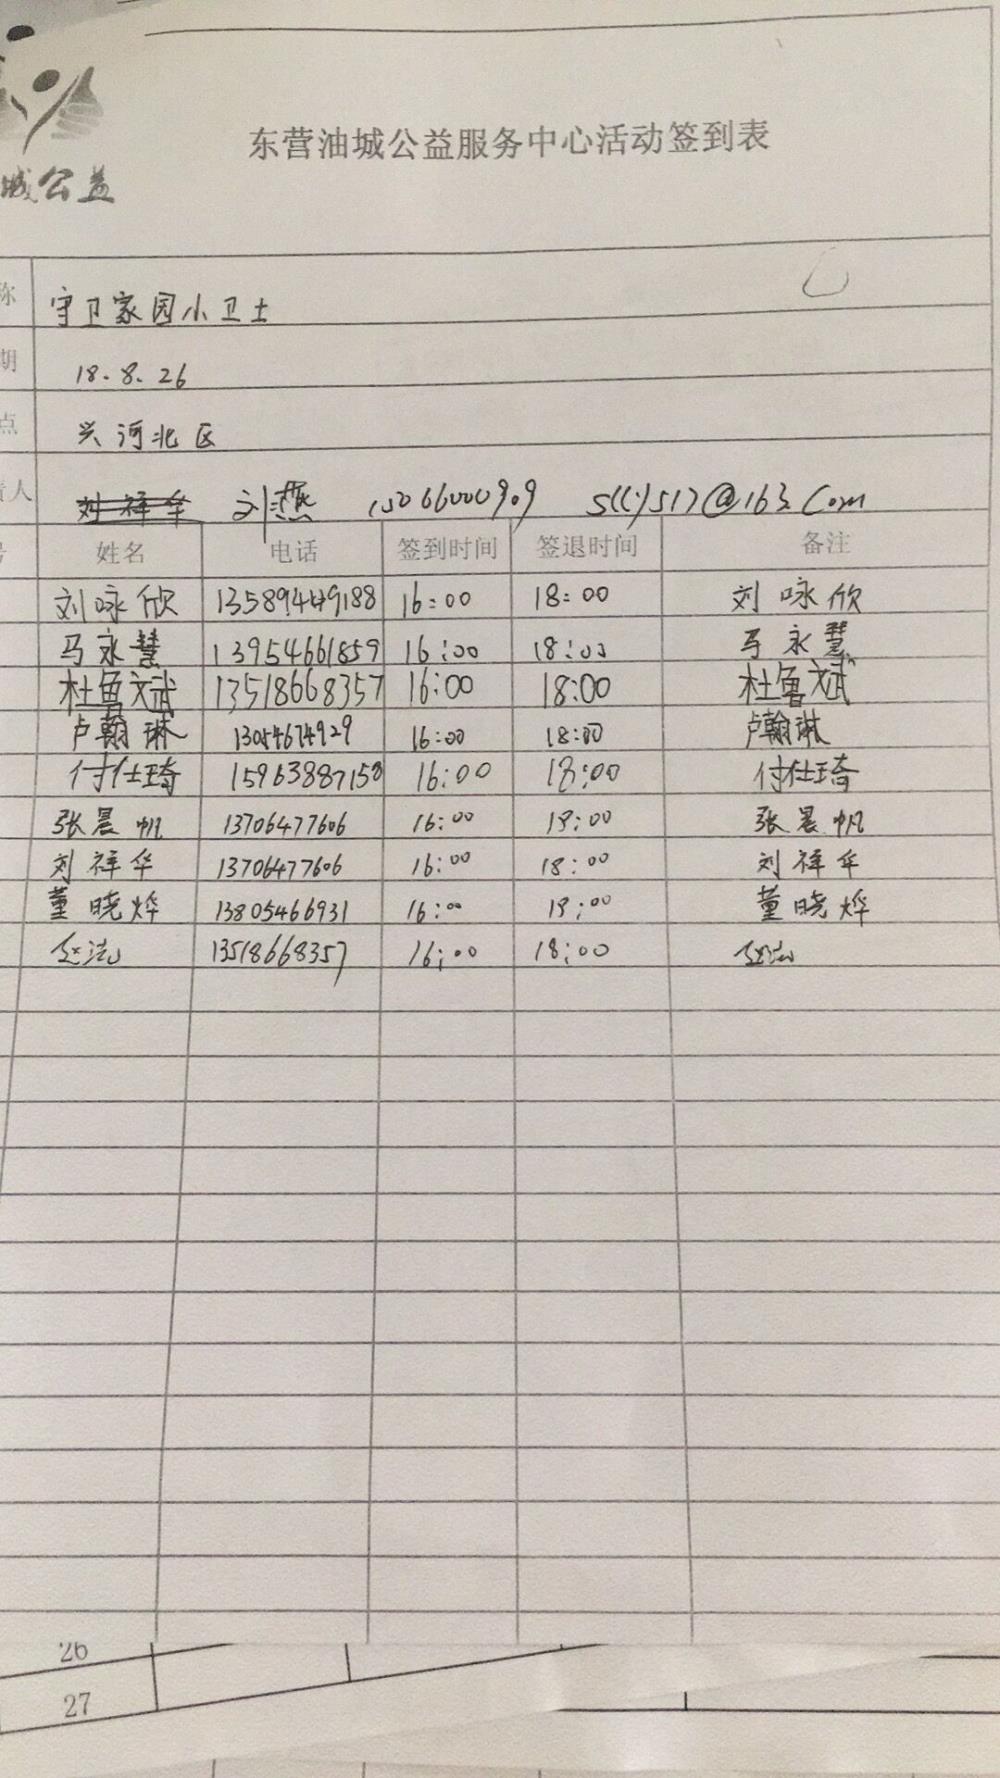 东营油城公益服务中心活动签到表
城公益
称 守卫家园小卫士
期 18.8.26
点 兴河北区
责人 刘祥华 刘燕 15066000909
号 姓名 电话 签到时间 签退时间 备注
刘咏欣 13589449188 16:00 18:00 刘咏欣
马永慧 13954661859 16:00 18:00 马永慧
杜鲁文斌 13518668357 16:00 18:00 杜鲁文斌
卢翰琳 13054674929 16:00 18:00 卢翰琳
付仕琦 15963887150 16:00 18:00 付仕琦
张晨帆 13706477606 16:00 18:00 张晨帆
刘祥华 13706477606 16:00 18:00 刘祥华
董晓烨 13805466931 16:00 18:00 董晓烨
13518668357 16:00 18:00
26
27